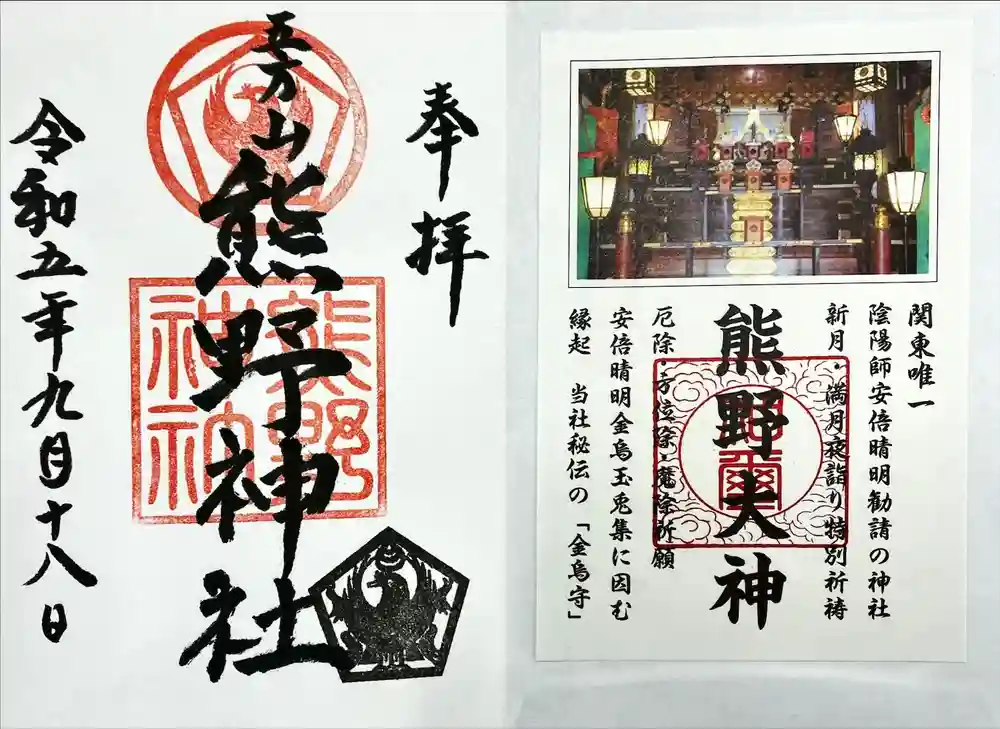 関東唯一
陰陽師安倍晴明勧請の神社
新月・満月夜詣り特別祈祷
熊野大神
厄除・方位除・魔除祈願
安倍晴明金烏玉兎集に因む
縁起 当社秘伝の「金烏守」
奉拝
五方山
熊野神社
熊野
神社
令和五年九月十八日